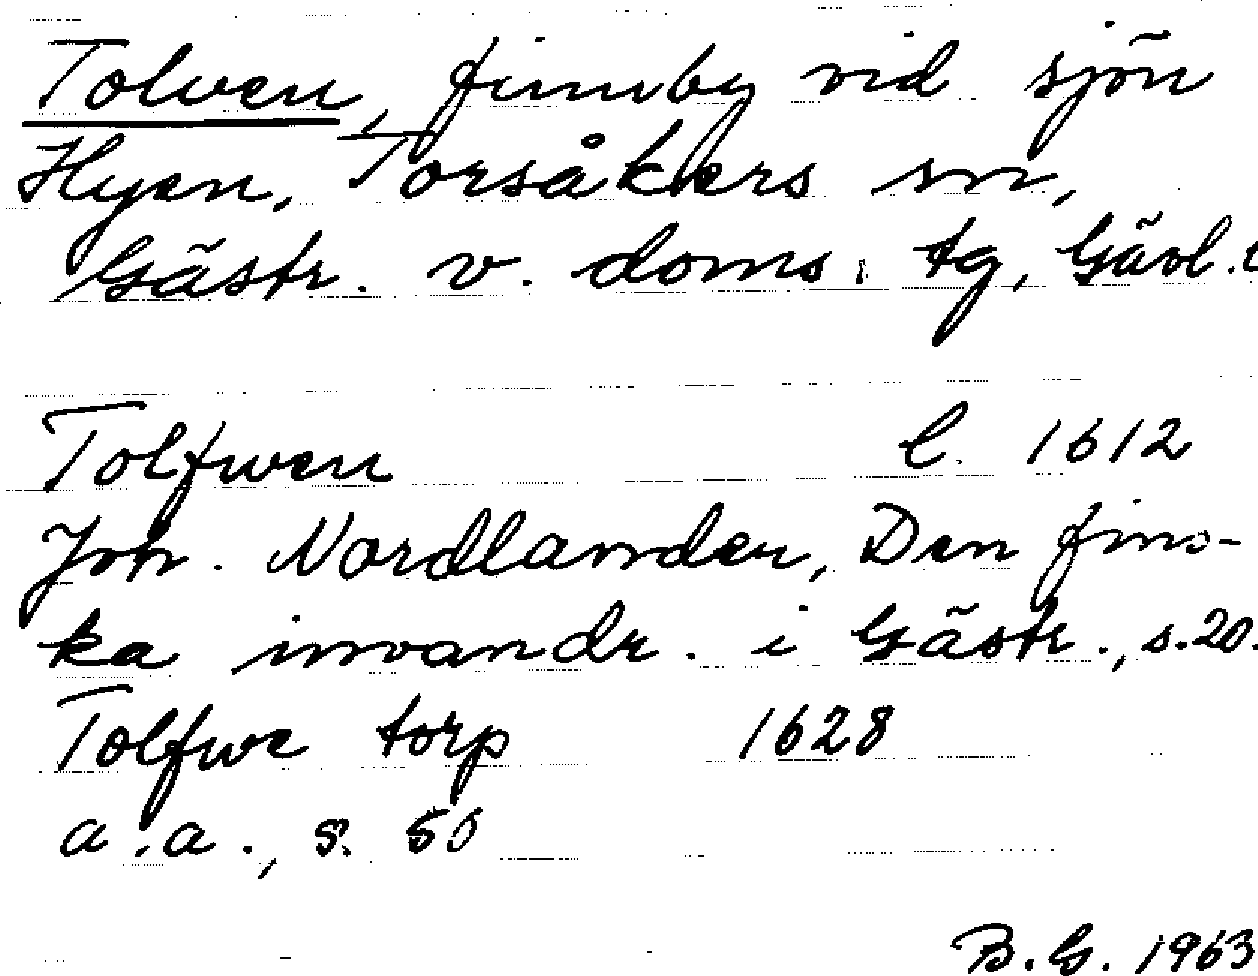 Tolven, finnby vid sjön
Hyen, Torsåkers sn,
Gästr. v. doms. tg, Gävl. l
Tolfwen l. 1612
Joh. Nordlander, Den fins-
ka invandr. i Gästr., s. 20.
Tolfwe torp 1628
a.a., s. 50
B.G. 1963